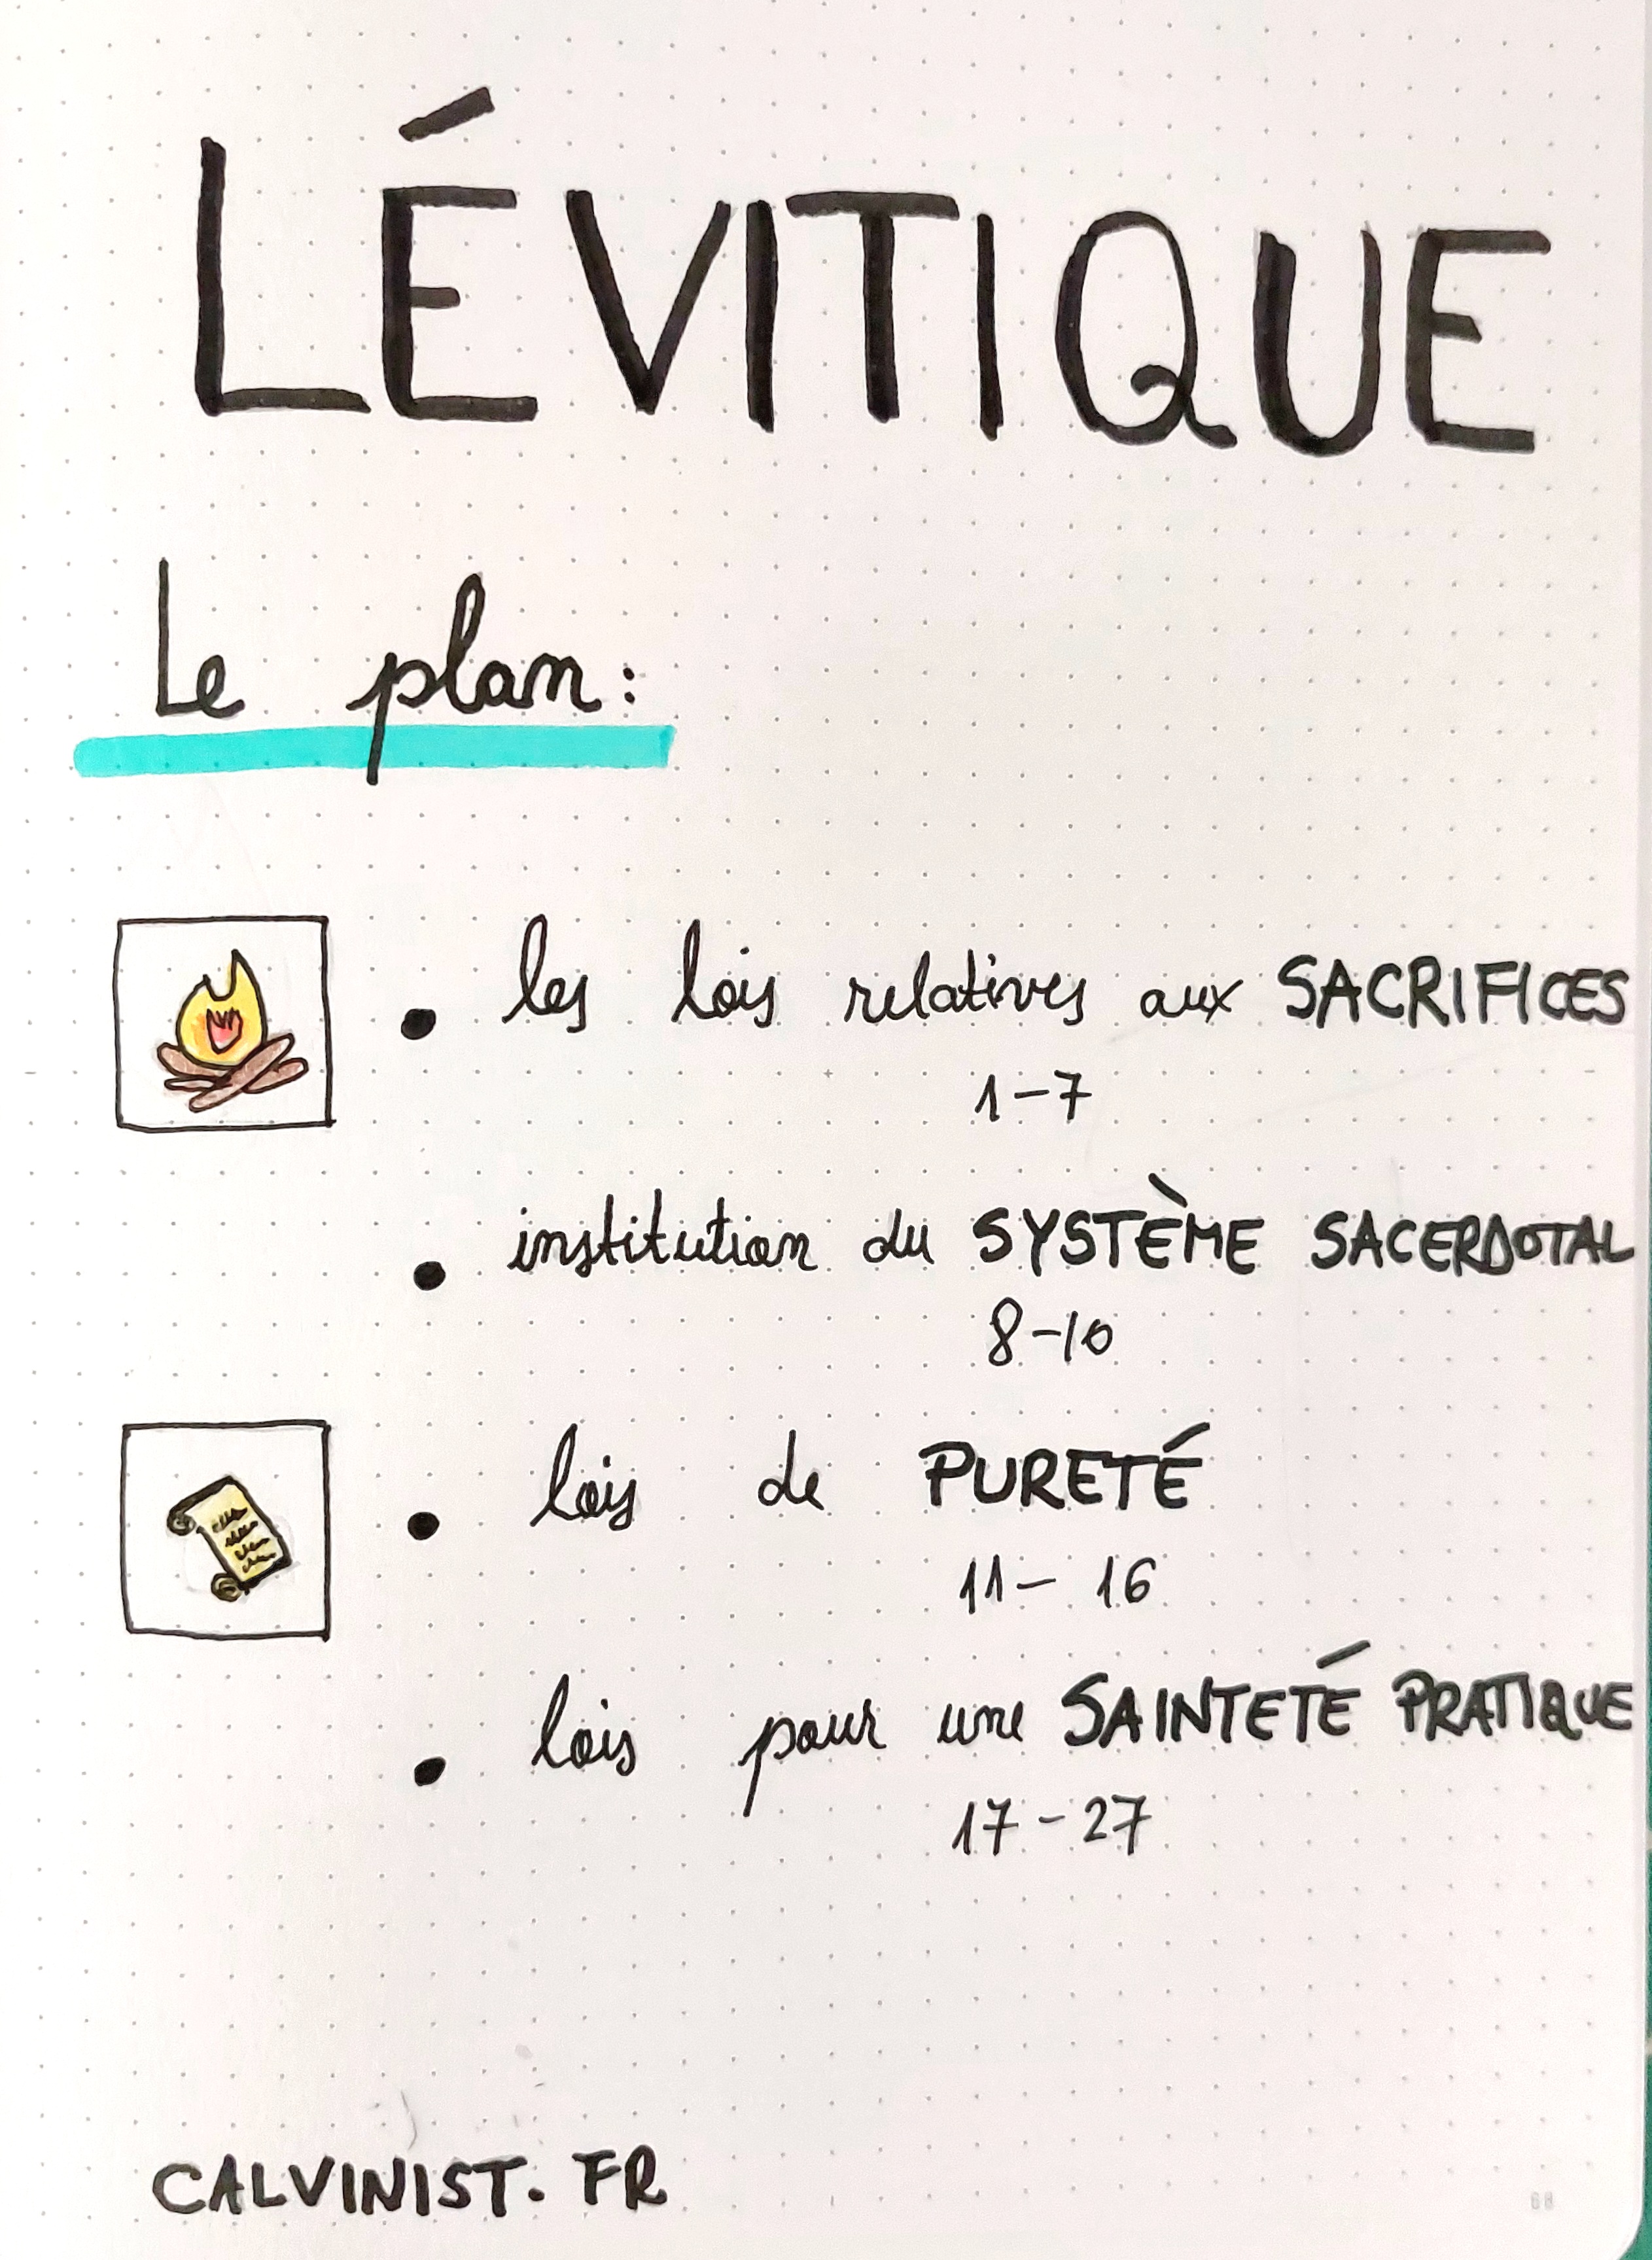 LÉVITIQUE
Le plan:
• les lois relatives aux SACRIFICES
1-7
• institution du SYSTÈME SACERDOTAL
8-10
• lois de PURETÉ
11- 16
• lois pour une SAINTETÉ PRATIQUE
17-27
CALVINIST. FR
68